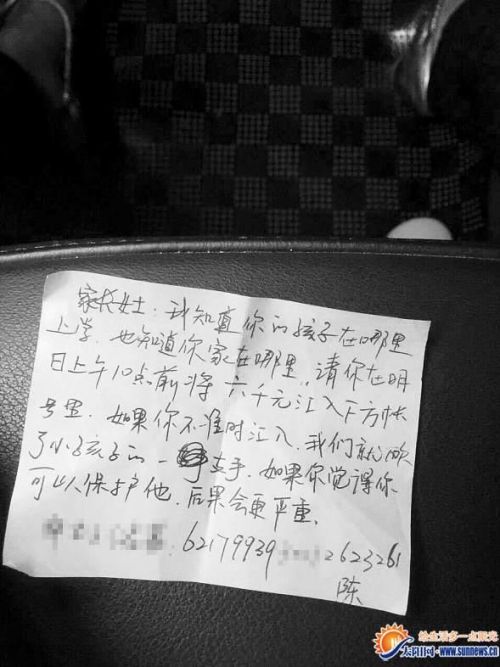 家长女士：我知道你的孩子在哪里
上学，也知道你家在哪里，请你在明
日上午10点前将六千元汇入下方帐
号里．如果你不准时汇入．我们就砍
了小孩子的一支手．如果你觉得你
可以保护他．后果会更严重．
：62179939 2623261
陈
给生活多一点阳光
太阳网·www.sunnews.cn